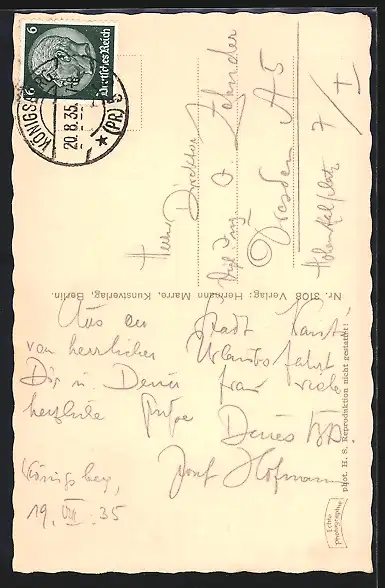 6
6
Deutsches Reich
KÖNIGSB
20.8.35.
★ (PR) 5
Herrn Direktor
Dipl Ing O. Zehnder
Dresden A 5
Hohenthalplatz 7/I
Nr. 3108 Verlag: Hermann Marre, Kunstverlag, Berlin.
Aus der Stadt Kants
von herrlicher Urlaubsfahrt
Dir u. Deiner Frau viele
herzliche Grüße
Deines
Josef Hofmann
Königsberg,
19. VIII. 35
phot. H. S. Reproduktion nicht gestattet!
Echte
Photographie